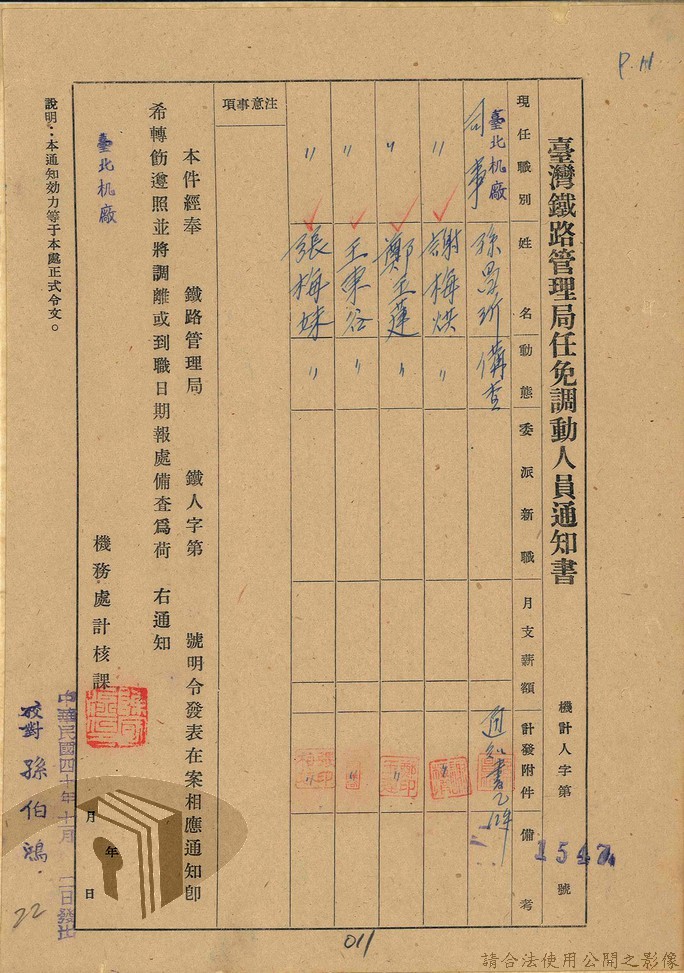 P.11
臺灣鐵路管理局任免調動人員通知書
機計人字第1547號
現任職別 姓名 動態 委派新職 月支薪額 計發附件 備考
臺北机廠司事 孫 備查 通知書乙件
〃 謝梅 〃 〃
〃 鄭玉蓮 〃 〃
〃 王東谷 〃 〃
〃 張梅妹 〃 〃
注意事項
本件經奉 鐵路管理局 鐵人字第 號明令發表在案相應通知卽
希轉飭遵照並將調離或到職日期報處備査爲荷 右通知
臺北机廠
機務處計核課
年 月 日
說明：本通知効力等于本處正式令文。
中華民國四十年十月 二日發出
校對 孫伯鴻
22
011
請合法使用公開之影像